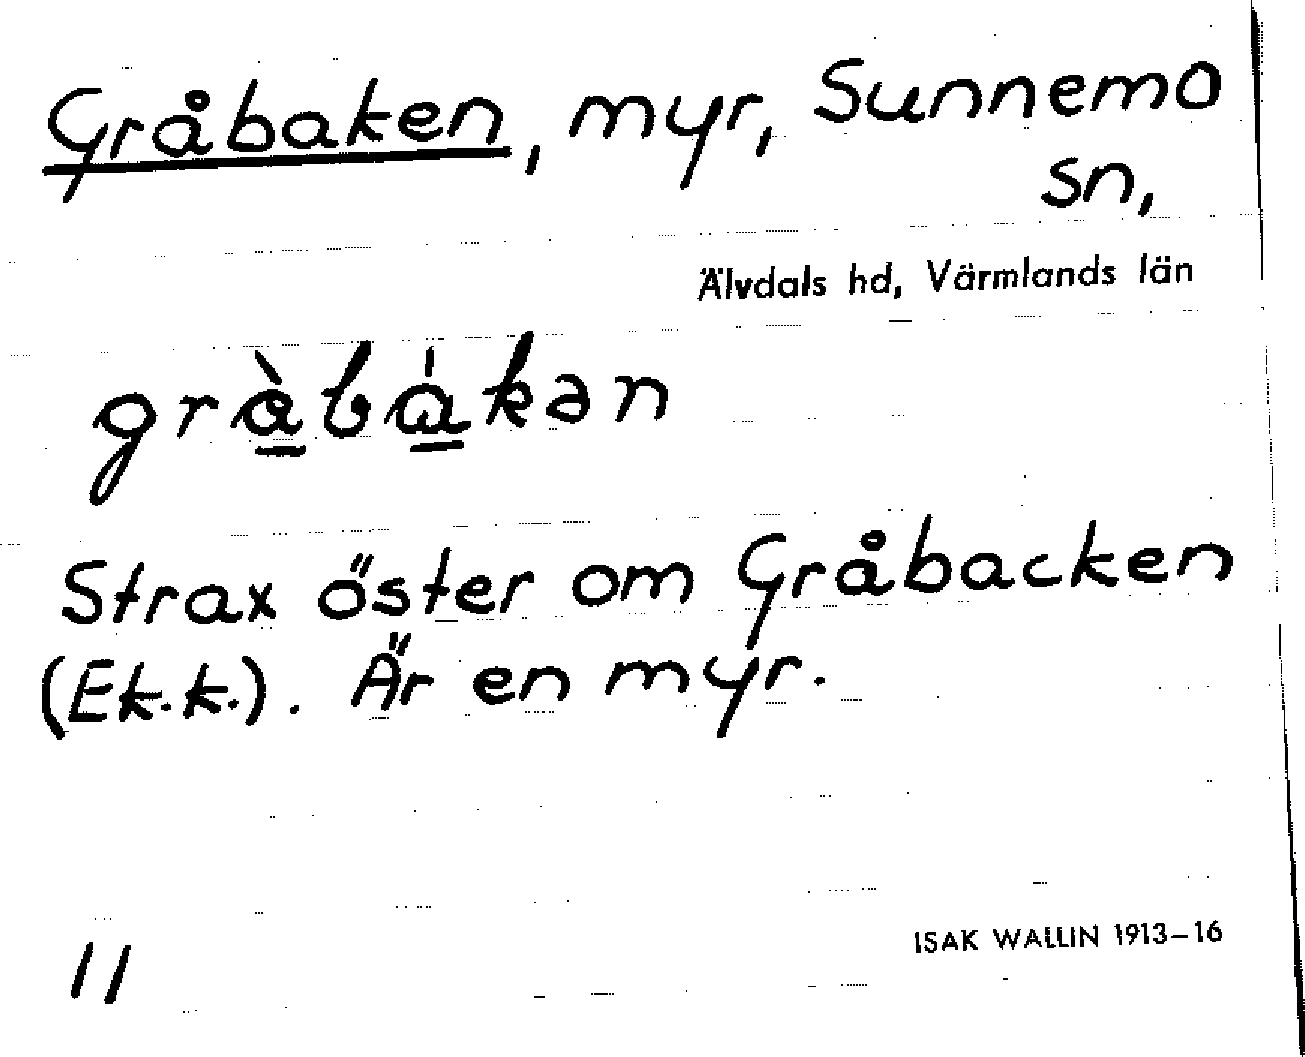 Gråbaken, myr, Sunnemo
sn,
Älvdals hd, Värmlands län
gràbákən
Strax öster om Gråbacken
(Ek.k.). Är en myr.
11
ISAK WALLIN 1913–16